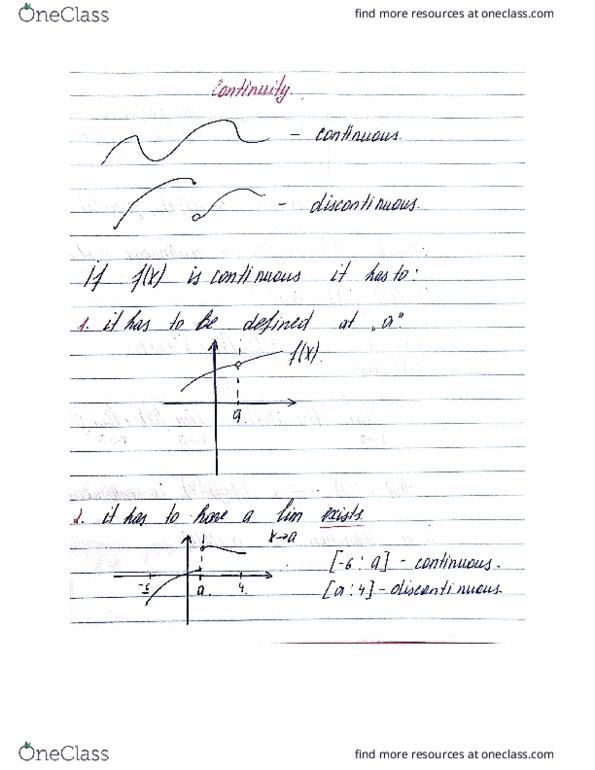 OneClass
find more resources at oneclass.com
Continuity.
- continuous.
- discontinuous.
If f(x) is continuous it has to:
1. it has to be defined at „a"
f(x).
a.
2. it has to have a lim exists.
x→a
[-6 : a] - continuous.
-6 a. 4.
[a : 4] - discontinuous.
OneClass
find more resources at oneclass.com